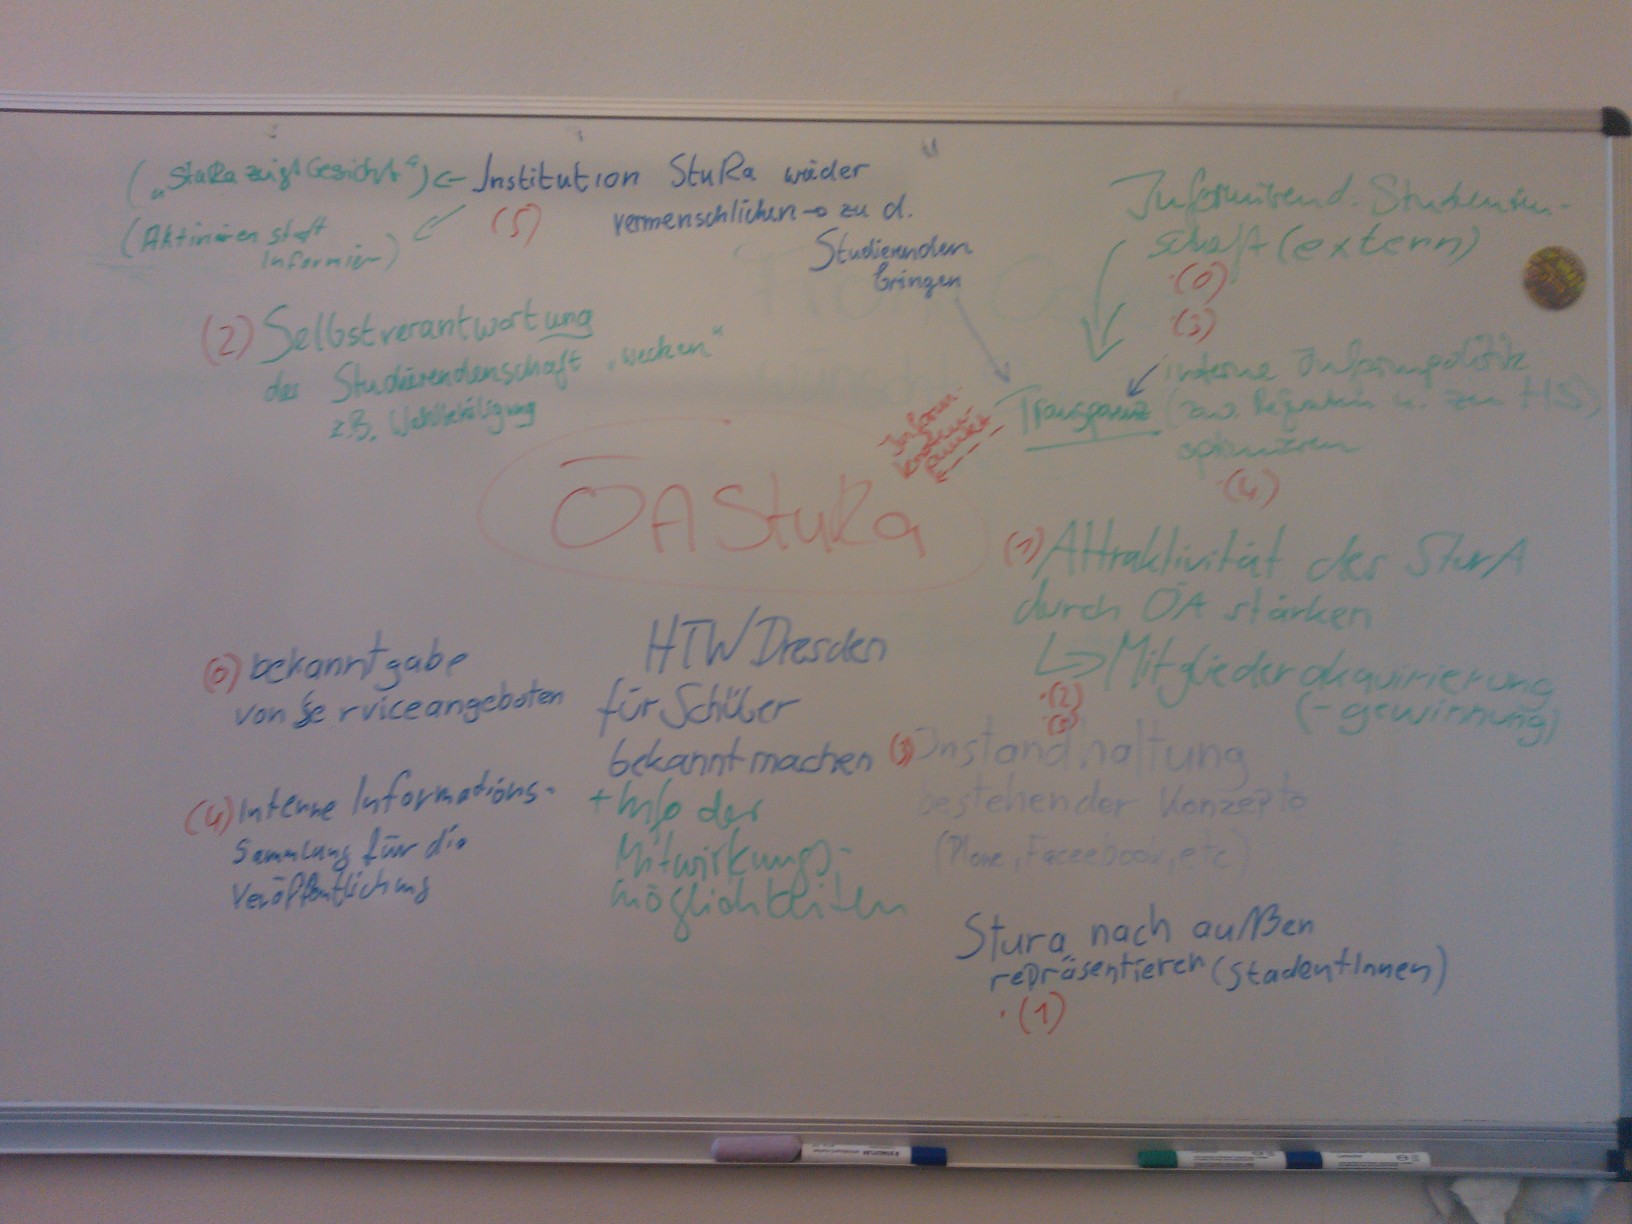 („StuRa zeigt Gesicht“) <- Institution StuRa wieder
(5) vermenschlichen -> zu d.
Studierenden
bringen
(Aktivieren statt
Informier)
(2) Selbstverantwortung
der Studierendenschaft „wecken“
z.B. Wahlbeteiligung
d. Studenten-
schaft (extern)
(0)
(3)
interne Informpolitik
Transparenz (zw. Referaten u. zur HS)
optimieren
(4)
Inform
knoten
punkt
ÖA StuRa
(1) Attraktivität des SturA
durch ÖA stärken
↳ Mitgliederakquirierung
(-gewinnung)
(2)
HTW Dresden
für Schüler
bekannt machen
+ Info der
Mitwirkungs-
möglichkeiten
bekanntgabe
von Serviceangeboten
(4) Interne Informations-
Sammlung für die
Veröffentlichung
(3) Instandhaltung
bestehender Konzepte
(Plone, Faceebook, etc)
Stura nach außen
repräsentieren (StudentInnen)
(1)